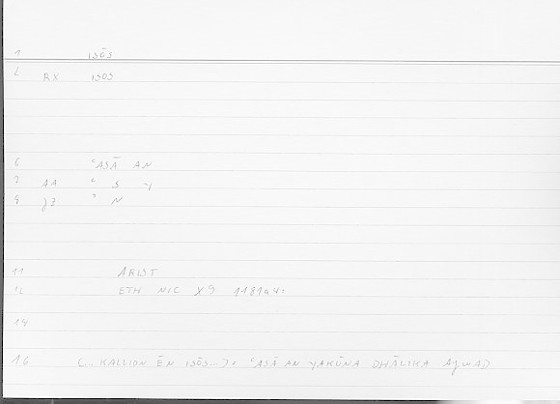 1 ISŌS
2 RX ISOS
6 ʿASĀ AN
7 AA ʿ S Y
8 JJ ʾ N
11 ARIST
12 ETH NIC X9 1181a4:
14
16 (.. KALLION ĒN ISŌS..): ʿASĀ AN YAKŪNA DHĀLIKA AJWAD